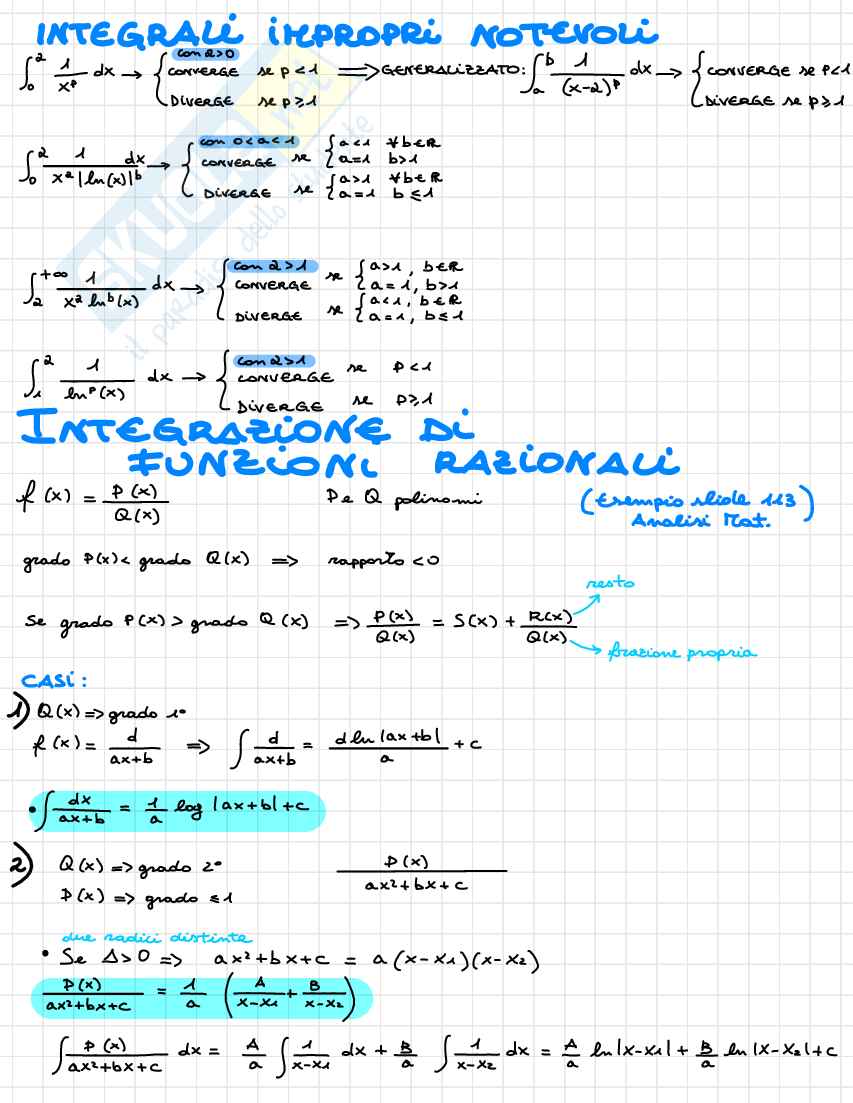 INTEGRALI IMPROPRI NOTEVOLI
∫₀² 1/xᵖ dx → { con 2>0 CONVERGE se p<1 ⟹ GENERALIZZATO: ∫ₐᵇ 1/(x-2)ᵖ dx → { CONVERGE se p<1
DIVERGE se p≥1 DIVERGE se p≥1
∫₀² 1/(x² |ln(x)|ᵇ) dx → { con 0<a<1
CONVERGE se { a<1 ∀b∈R
a=1 b>1
DIVERGE se { a>1 ∀b∈R
a=1 b≤1
∫₂^+∞ 1/(x² lnᵇ(x)) dx → { con 2>1
CONVERGE se { a>1, b∈R
a=1, b>1
DIVERGE se { a<1, b∈R
a=1, b≤1
∫₁² 1/lnᵖ(x) dx → { con 2>1
CONVERGE se p<1
DIVERGE se p≥1
INTEGRAZIONE DI
FUNZIONI RAZIONALI
f(x) = P(x)/Q(x) P e Q polinomi (Esempio slide 113
Analisi Mat.)
grado P(x) < grado Q(x) ⟹ rapporto <0
resto
Se grado P(x) > grado Q(x) ⟹ P(x)/Q(x) = S(x) + R(x)/Q(x)
frazione propria
CASI:
1) Q(x) ⟹ grado 1°
f(x) = d/(ax+b) ⟹ ∫ d/(ax+b) = d ln|ax+b|/a + c
• ∫ dx/(ax+b) = 1/a log |ax+b| + c
2) Q(x) ⟹ grado 2° P(x)/(ax²+bx+c)
P(x) ⟹ grado ≤1
due radici distinte
• Se Δ>0 ⟹ ax²+bx+c = a(x-x₁)(x-x₂)
P(x)/(ax²+bx+c) = 1/a (A/(x-x₁) + B/(x-x₂))
∫ P(x)/(ax²+bx+c) dx = A/a ∫ 1/(x-x₁) dx + B/a ∫ 1/(x-x₂) dx = A/a ln|x-x₁| + B/a ln|x-x₂| + c
SKUOLA.net
il paradiso dello studente